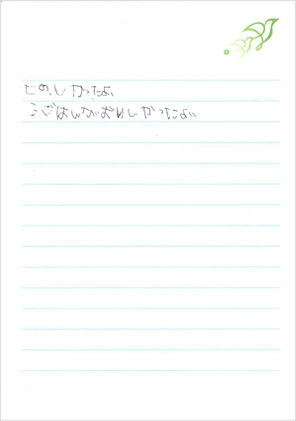 たのしかったよ
ごはんがおいしかったよ